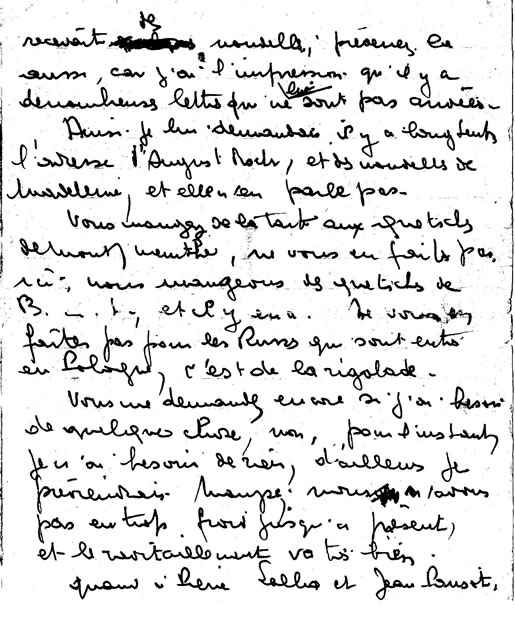 recevait des nouvelles, prévenez le
aussi, car j'ai l'impression qu'il y a
de nombreuses lettres qui ne lui sont pas arrivées -
Ainsi je lui demandais il y a longtemps
l'adresse d'August Roch, et des nouvelles de
Madeleine, et elle n'en parle pas -
Vous mangez de la tarte aux quetschs
de Mont, ne vous en faites pas,
ici, nous mangeons des quetschs de
B. — . t -, et il y en a. Ne vous en
faites pas pour les Russes qui sont entrés
en Pologne, c'est de la rigolade -
Vous me demandez encore si j'ai besoin
de quelque chose, non, pour l'instant,
je n'ai besoin de rien, d'ailleurs je
préviendrais nous n'avons
pas eu trop froid jusqu'à présent,
et le ravitaillement va très bien.
quand à Pierre et Jean